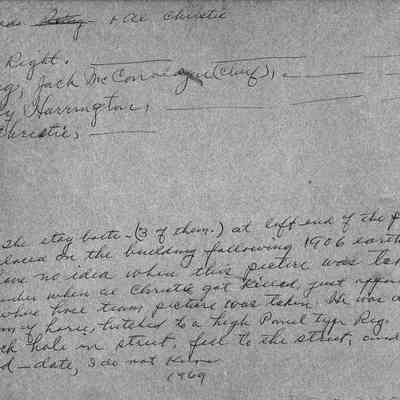 & Al Christie
Right.
Jack McConaigue (Chief),
y Harrington,
Christie,
The stay bolts - (3 of them.) at left end of the
placed on the building following 1906 earth
have no idea when this picture was
when Al Christie got killed, just
whose hose team, picture was taken. He was
horse, hitched to a high Panel type Rig.
hole in street, fell to the street, and
d - date, I do not know
1969